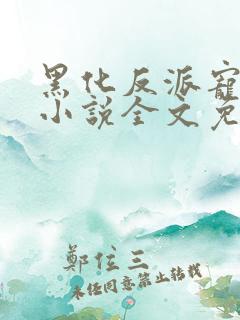 黑化反派寵
小說全文免
鄭位三
未經同意禁止轉載